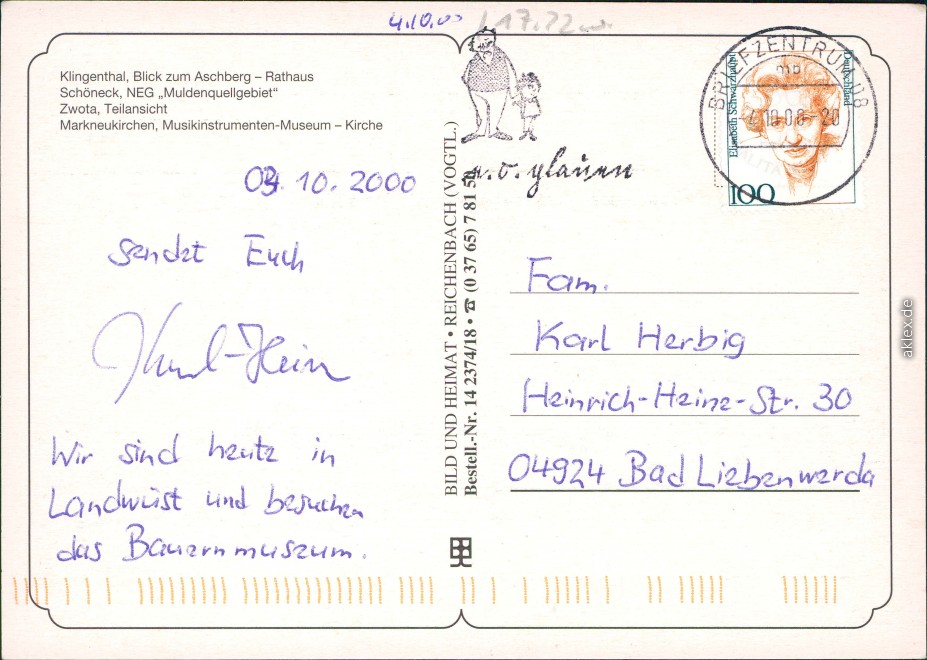 4.10.00
Klingenthal, Blick zum Aschberg – Rathaus
Schöneck, NEG „Muldenquellgebiet“
Zwota, Teilansicht
Markneukirchen, Musikinstrumenten-Museum – Kirche
03.10.2000
sendet Euch
Karl-Hein
Wir sind heute in
Landwüst und besuchen
das Bauernmuseum.
BILD UND HEIMAT • REICHENBACH (VOGTL.)
Bestell.-Nr. 14 2374/18 • ☎ (0 37 65) 7 81 50
e.o.plauen
BRIEFZENTRUM 08
mb
-4.10.00-20
Elisabeth Schwarzhaupt
Deutschland
100
Fam.
Karl Herbig
Heinrich-Heine-Str. 30
04924 Bad Liebenwerda
aklex.de